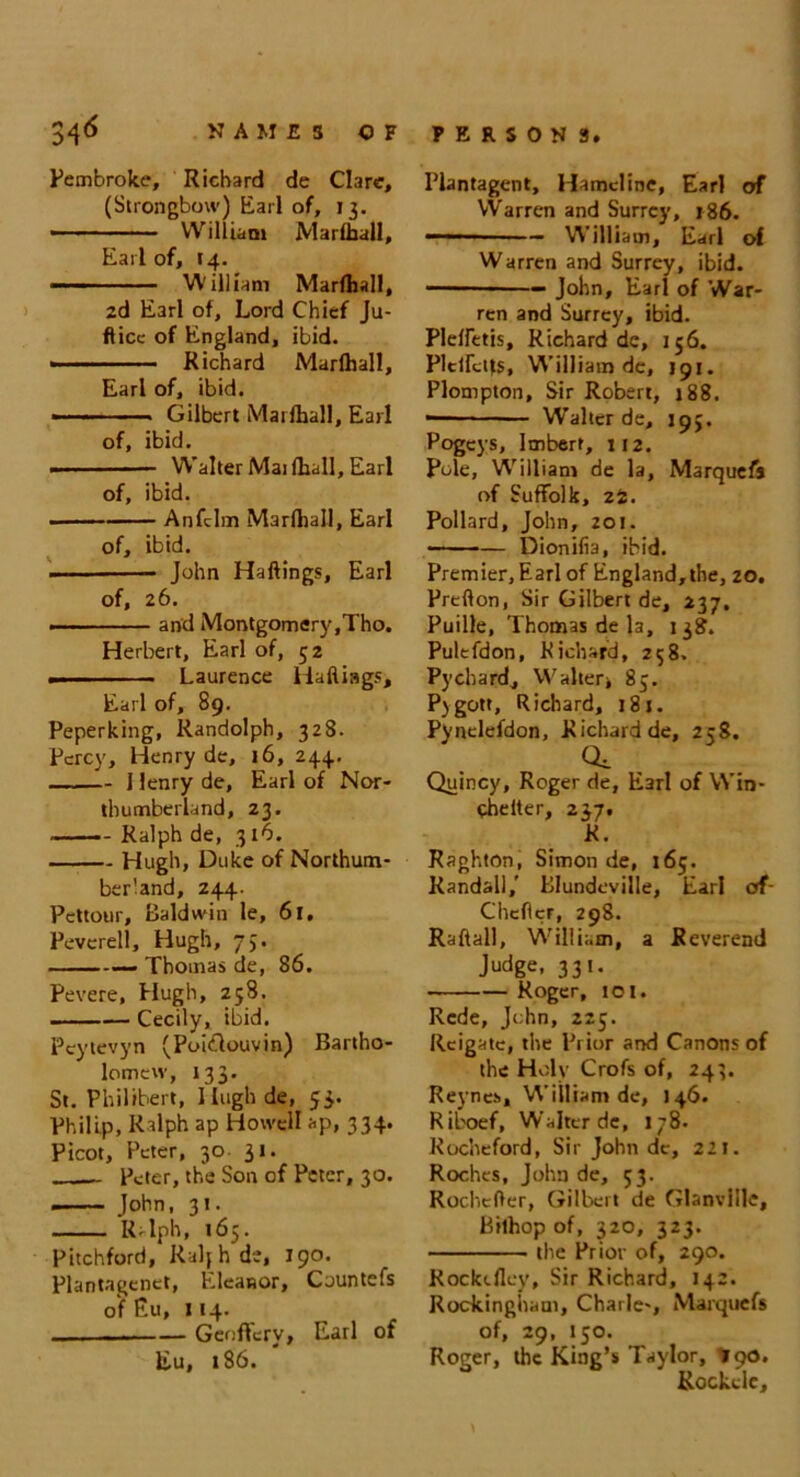 346 NAMES OF PERSONS.
Pembroke, Richard de Clare,
(Strongbow) Earl of, 13.
——— William Marſhall,
Earl of, 14.
——— William Marſhall,
2d Earl of, Lord Chief Ju-
ſtice of England, ibid.
——— Richard Marſhall,
Earl of, ibid.
——— Gilbert Marſhall, Earl
of, ibid.
——— Walter Marſhall, Earl
of, ibid.
——— Anſelm Marſhall, Earl
of, ibid.
——— John Haſtings, Earl
of, 26.
——— and Montgomery, Tho.
Herbert, Earl of, 52
——— Laurence Haſtings,
Earl of, 89.
Peperking, Randolph, 328.
Percy, Henry de, 16, 244.
——— Henry de, Earl of Nor-
thumberland, 23.
——— Ralph de, 316.
——— Hugh, Duke of Northum-
berland, 244.
Pettour, Baldwin le, 61.
Peverell, Hugh, 75.
——— Thomas de, 86.
Pevere, Hugh, 258.
——— Cecily, ibid.
Peytevyn (Poictouvin) Bartho-
lomew, 133.
St. Philibert, Hugh de, 53.
Philip, Ralph ap Howell ap, 334.
Picot, Peter, 30. 31.
——— Peter, the Son of Peter, 30.
——— John, 31.
——— Ralph, 165.
Pitchford, Ralph de, 190.
Plantagenet, Eleanor, Counteſs
of Eu, 114.
——— Geoffery, Earl of
Eu, 186.
Plantagent, Hameline, Earl of
Warren and Surrey, 186.
——— William, Earl of
Warren and Surrey, ibid.
——— John, Earl of War-
ren and Surrey, ibid.
Pleſſetis, Richard de, 156.
Pleſſetts, William de, 191.
Plompton, Sir Robert, 188.
——— Walter de, 195.
Pogeys, Imbert, 112.
Pole, William de la, Marqueſs
of Suffolk, 22.
Pollard, John, 201.
——— Dioniſia, ibid.
Premier, Earl of England, the, 20.
Preſton, Sir Gilbert de, 237.
Puille, Thomas de la, 138.
Puleſdon, Richard, 258.
Pychard, Walter, 85.
Pygott, Richard, 181.
Pyneleſdon, Richard de, 258.
Q.
Quincy, Roger de, Earl of Win-
cheſter, 237.
R.
Raghton, Simon de, 165.
Randall, Blundeville, Earl of
Cheſter, 298.
Raſtall, William, a Reverend
Judge, 331.
——— Roger, 101.
Rede, John, 225.
Reigate, the Prior and Canons of
the Holy Croſs of, 243.
Reynes, William de, 146.
Riboef, Walter de, 178.
Rocheford, Sir John de, 221.
Roches, John de, 53.
Rocheſter, Gilbert de Glanville,
Biſhop of, 320, 323.
——— the Prior of, 290.
Rockeſley, Sir Richard, 142.
Rockingham, Charles, Marqueſs
of, 29, 150.
Roger, the King's Taylor, 190.
Rockele,